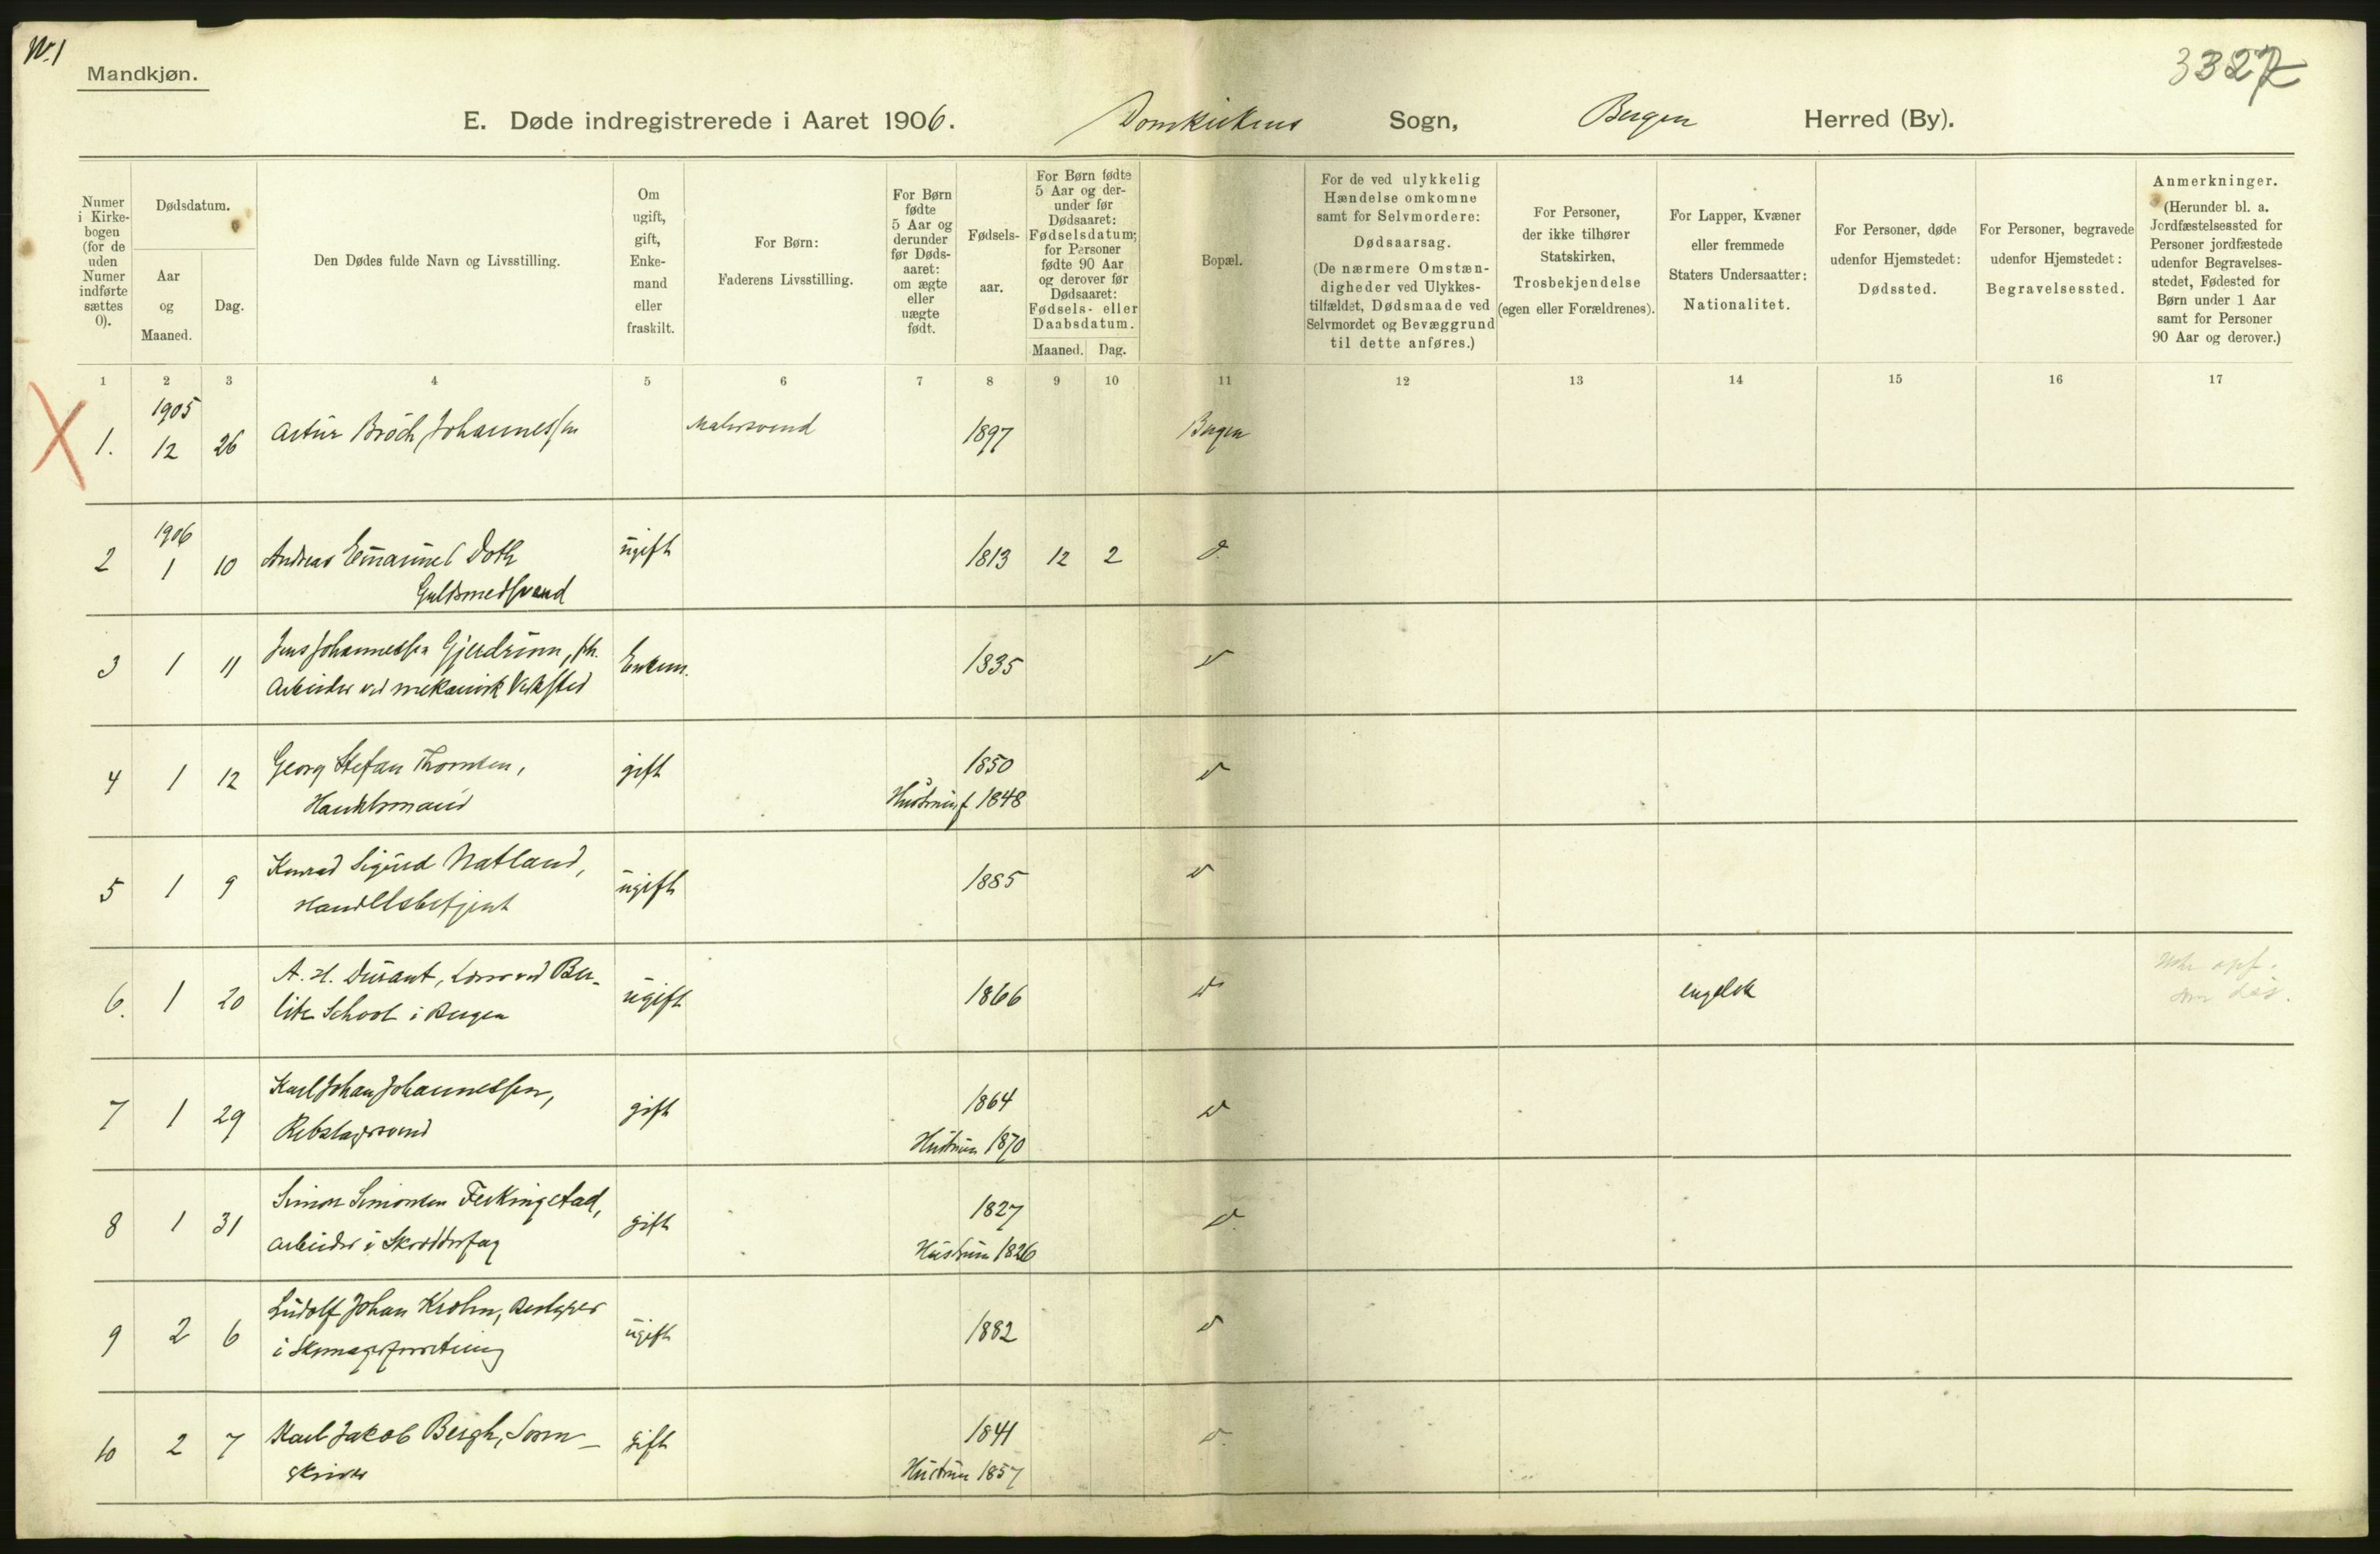 N. 1
Mandkjøn.
3327
E. Døde indregistrerede i Aaret 1906. Domkirkens Sogn, Bergen Herred (By).
Numer i Kirkebogen (for de uden Numer indførte sættes 0).
Dødsdatum.
Aar og Maaned.
Dag.
Den Dødes fulde Navn og Livsstilling.
Om ugift, gift, Enkemand eller fraskilt.
For Børn: Faderens Livsstilling.
For Børn fødte 5 Aar og derunder før Dødsaaret: om ægte eller uægte født.
Fødselsaar.
For Børn fødte 5 Aar og derunder før Dødsaaret: Fødselsdatum; for Personer fødte 90 Aar og derover før Dødsaaret: Fødsels- eller Daabsdatum.
Maaned. Dag.
Bopæl.
For de ved ulykkelig Hændelse omkomne samt for Selvmordere: Dødsaarsag. (De nærmere Omstændigheder ved Ulykkestilfældet, Dødsmaade ved Selvmordet og Bevæggrund til dette anføres.)
For Personer, der ikke tilhører Statskirken, Trosbekjendelse (egen eller Forældrenes).
For Lapper, Kvæner eller fremmede Staters Undersaatter: Nationalitet.
For Personer, døde udenfor Hjemstedet: Dødssted.
For Personer, begravede udenfor Hjemstedet: Begravelsessted.
Anmerkninger. (Herunder bl. a. Jordfæstelsessted for Personer jordfæstede udenfor Begravelsesstedet, Fødested for Børn under 1 Aar samt for Personer 90 Aar og derover.)
1 2 3 4 5 6 7 8 9 10 11 12 13 14 15 16 17
1905
1. 12 26 Artur Broch Johannessen Malersvend 1897 Bergen
1906
2 1 10 Andreas Emanuel Doth ugift 1813 12 2 d.
Guldsmedsvend
3 1 11 Jens Johannessen Gjerdrum, fh. Enkem. 1835 d
Arbeider ved mekanisk Verksted
4 1 12 Georg Stefan Thomsen, gift 1850 d
Handelsmand Hustru f 1848
5 1 9 Konrad Sigurd Natland, ugift 1885 d
Handelsbetjent
6. 1 20 A. H. Durant, Lærer ved Ber- ugift 1866 d engelsk
litz School i Bergen
7 1 29 Karl Johan Johannessen, gift 1864 d
Rebslagersvend Hustru 1870
8 1 31 Simon Simonsen Ferkingstad, gift 1827 d.
Arbeider i Skrædderfag Hustru 1826
9 2 6 Ludolf Johan Krohn, Bestyrer ugift 1882 d
i Skomagerforretning
10 2 7 Karl Jakob Bergh, Soren- gift 1841 d.
skriver Hustru 1857